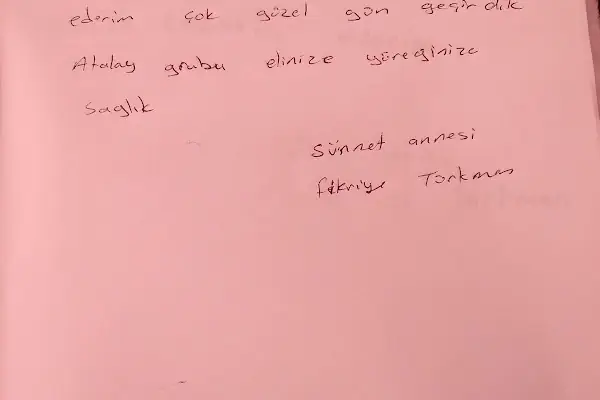 ederim çok güzel gün geçirdik
Atalay grubu elinize yüreğinize
sağlık
Sünnet annesi
fikriye Türkmen